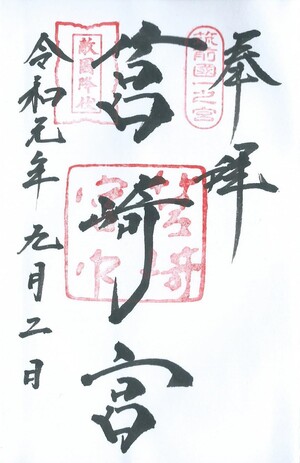 奉拝
筑前國一之宮
筥崎宮
敵國降伏
令和元年九月二日